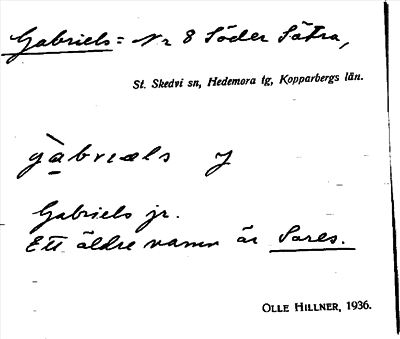 Gabriels = Nr 8 Söder Sätra,
St. Skedvi sn, Hedemora tg, Kopparbergs län.
gàbrıəls
Gabriels jr.
Ett äldre namn är Sares.
OLLE HILLNER, 1936.